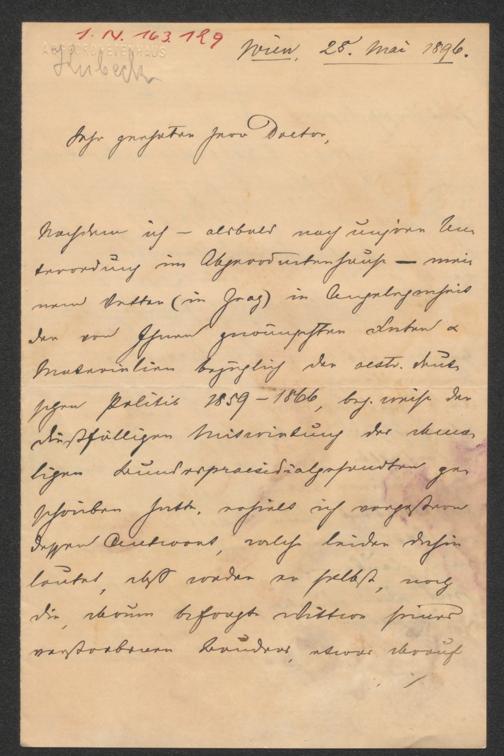 1. N. 163.129
ABGEORDNETENHAUS
Kubeck
Wien, 28. Mai 1896.
Sehr geehrter Herr Doctor,
Nachdem ich – alsbald nach unserer Un-
terredung im Abgeordnetenhause – mei-
nem Vetter (in Graz) in Angelegenheit
der von Ihnen gewünschten Daten &
Materialien bezüglich der oestr. deut-
schen Politik 1859–1866, bez. weise der
dießfälligen Mitwirkung des ehema-
ligen Bundespraesidialgesandten ge-
schrieben hatte, erhielt ich vorgestern
dessen Antwort, welche leider dahin
lautet, daß weder er selbst, noch
die, darum befragte Wittwe seines
verstorbenen Bruders, etwas darauf
./.